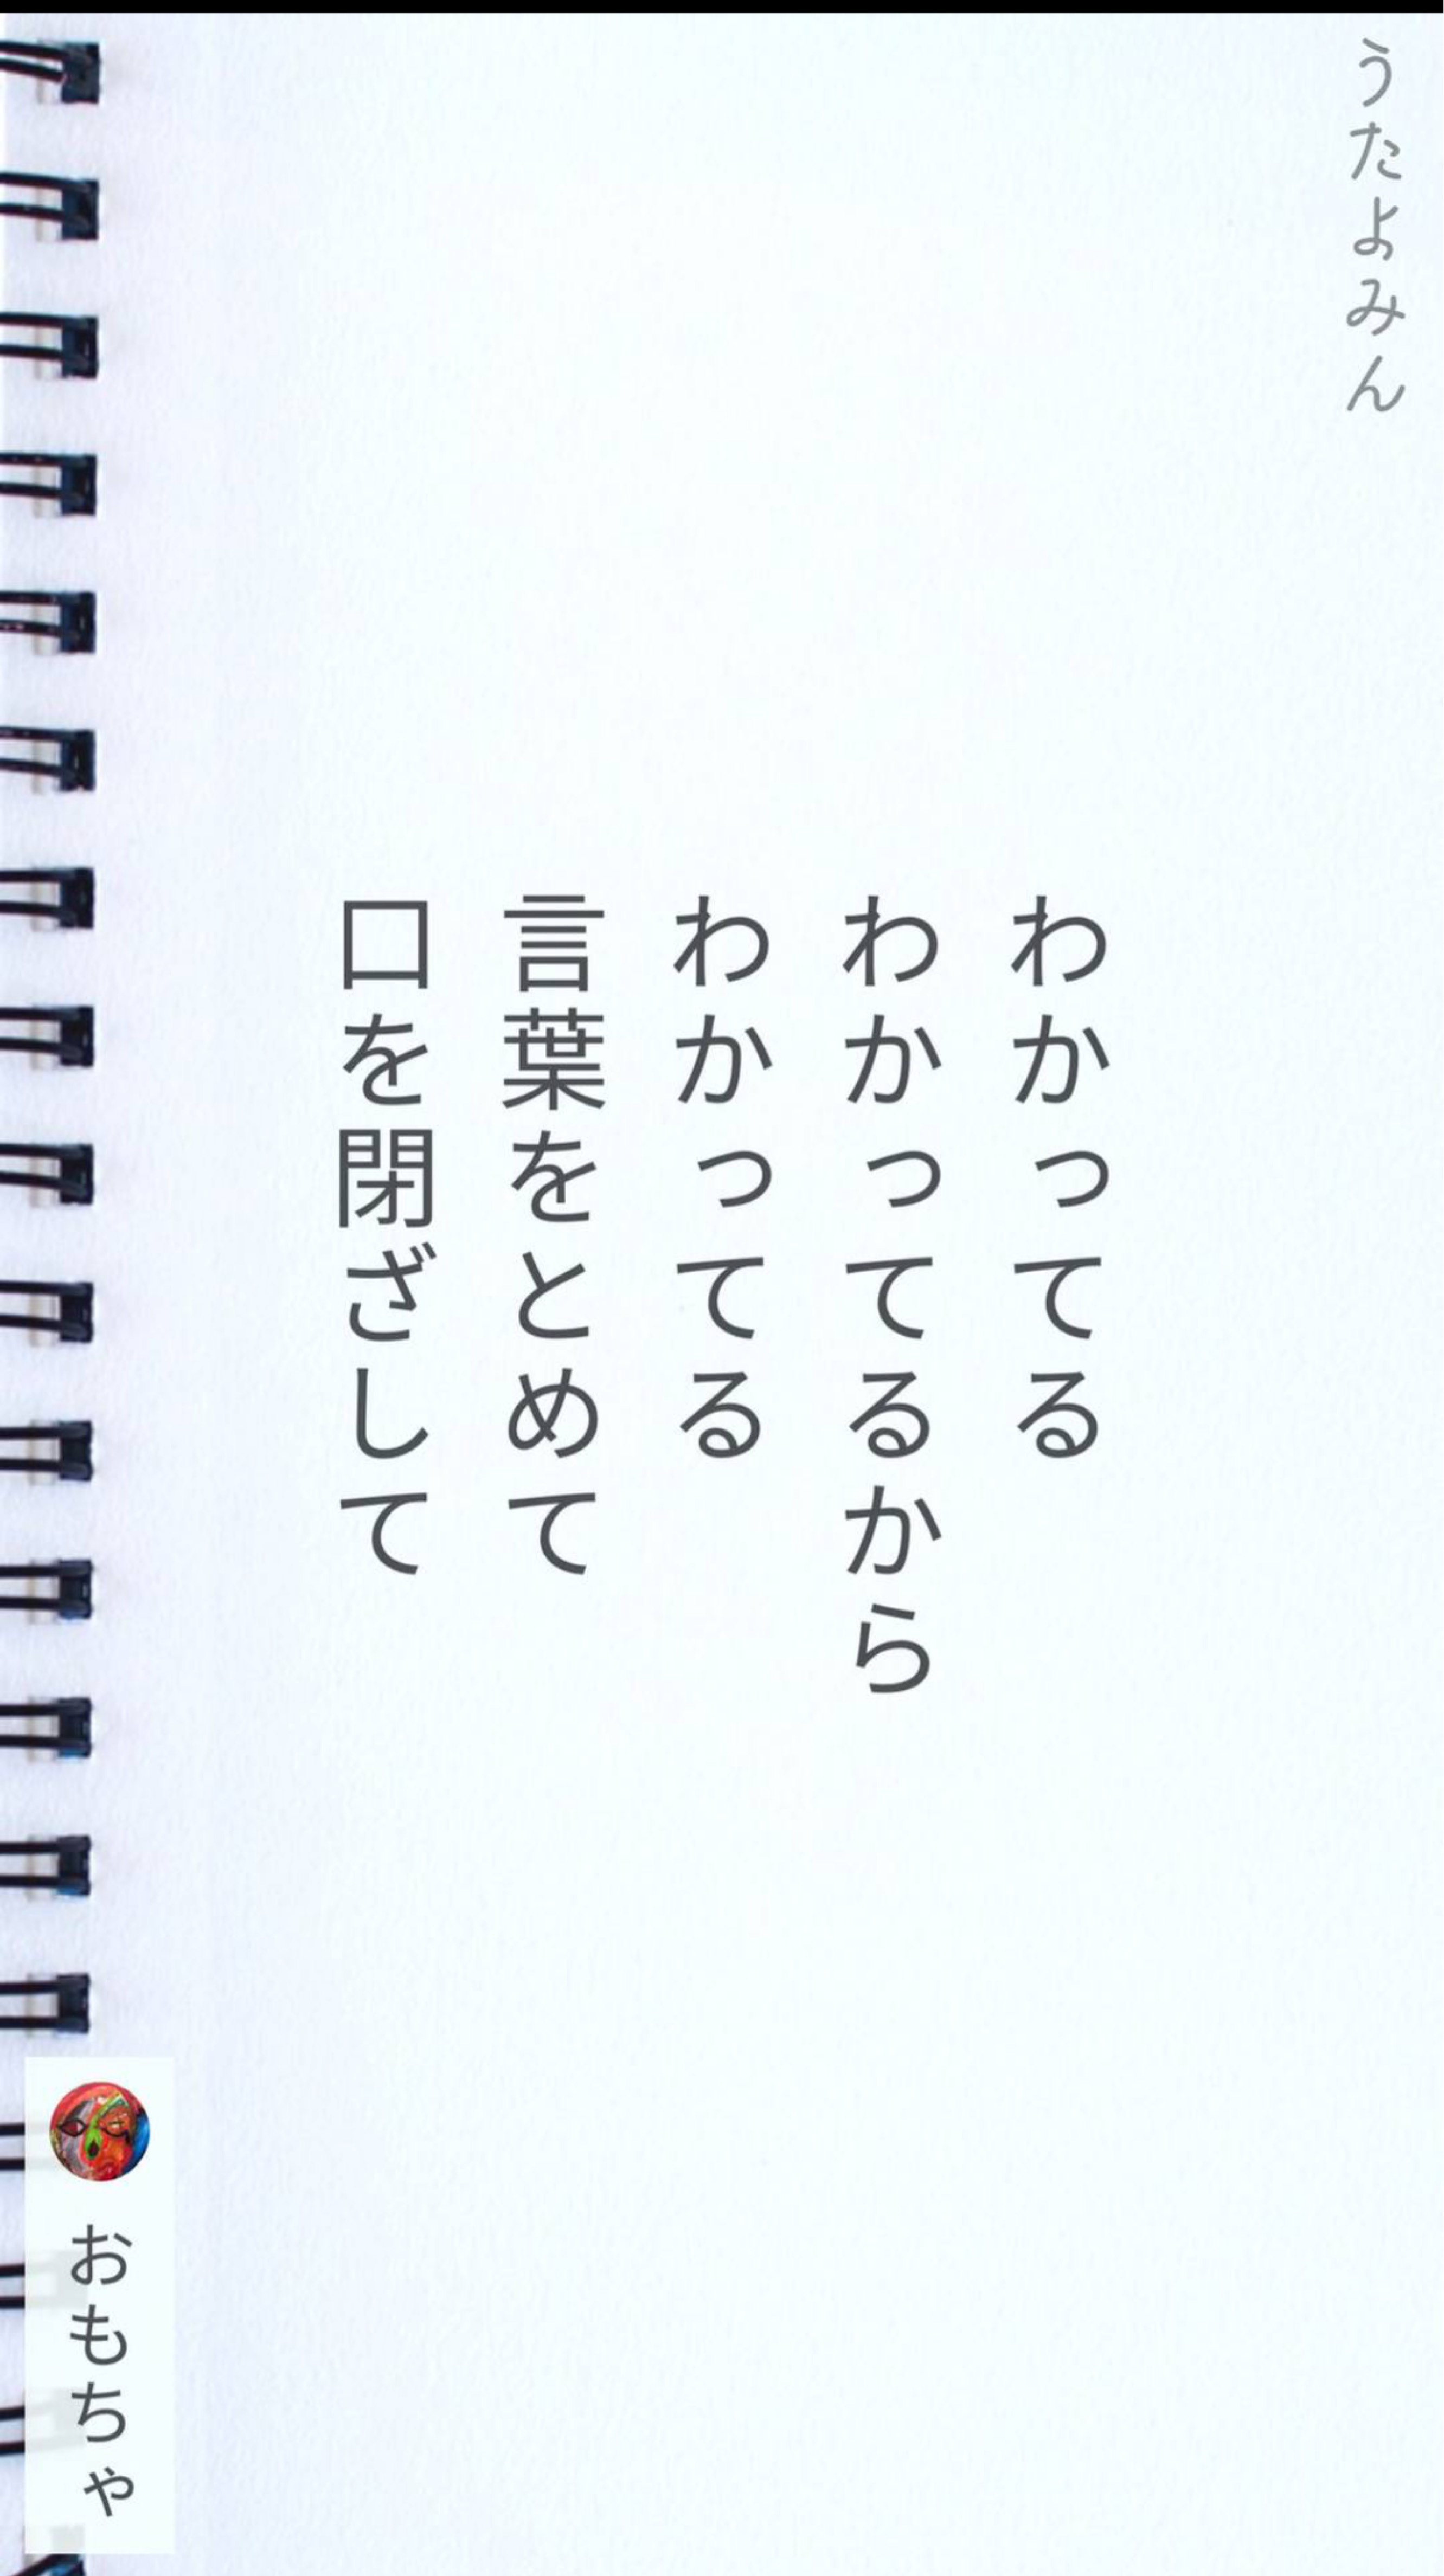 うたよみん
わかってる
わかってるから
わかってる
言葉をとめて
口を閉ざして
おもちゃ